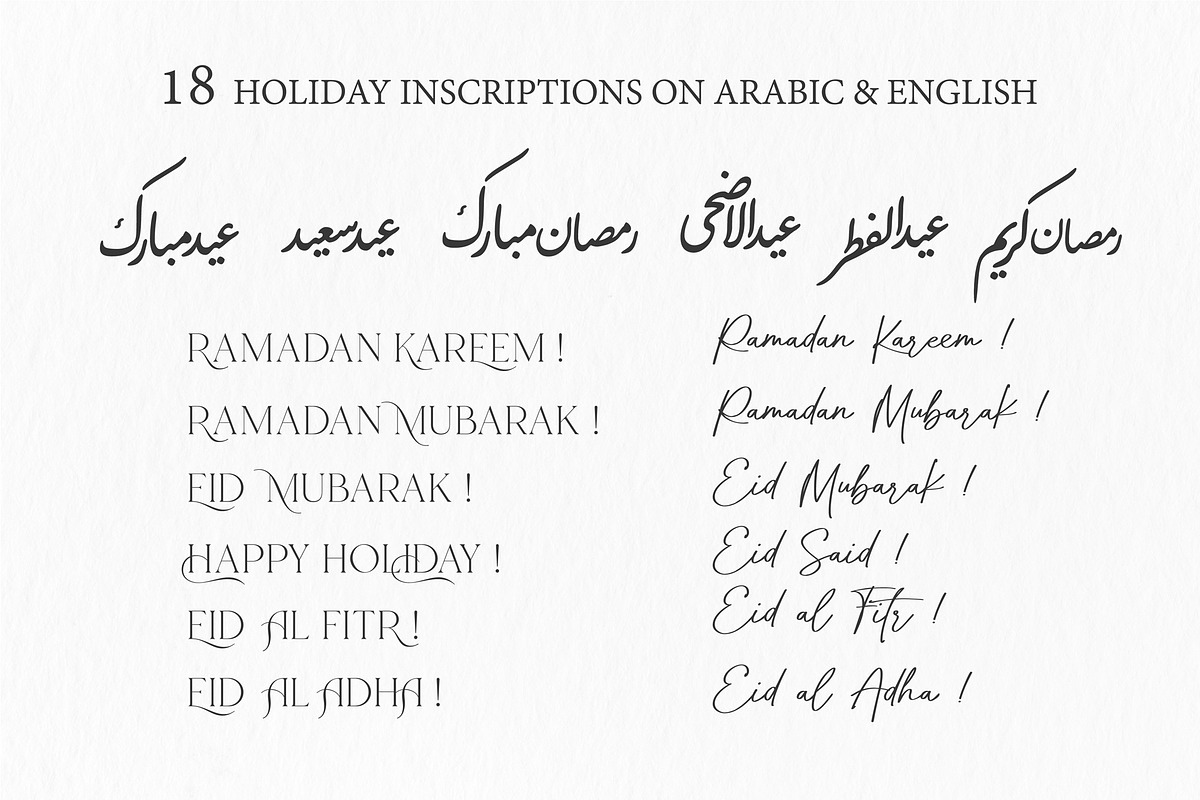 18 HOLIDAY INSCRIPTIONS ON ARABIC & ENGLISH
رمصان كريم عيد الفطر عيد الاضحى رمصان مبارك عيد سعيد عيد مبارك
RAMADAN KAREEM !
RAMADAN MUBARAK !
EID MUBARAK !
HAPPY HOLIDAY !
EID AL FITR !
EID AL ADHA !
Ramadan Kareem !
Ramadan Mubarak !
Eid Mubarak !
Eid Said !
Eid al Fitr !
Eid al Adha !